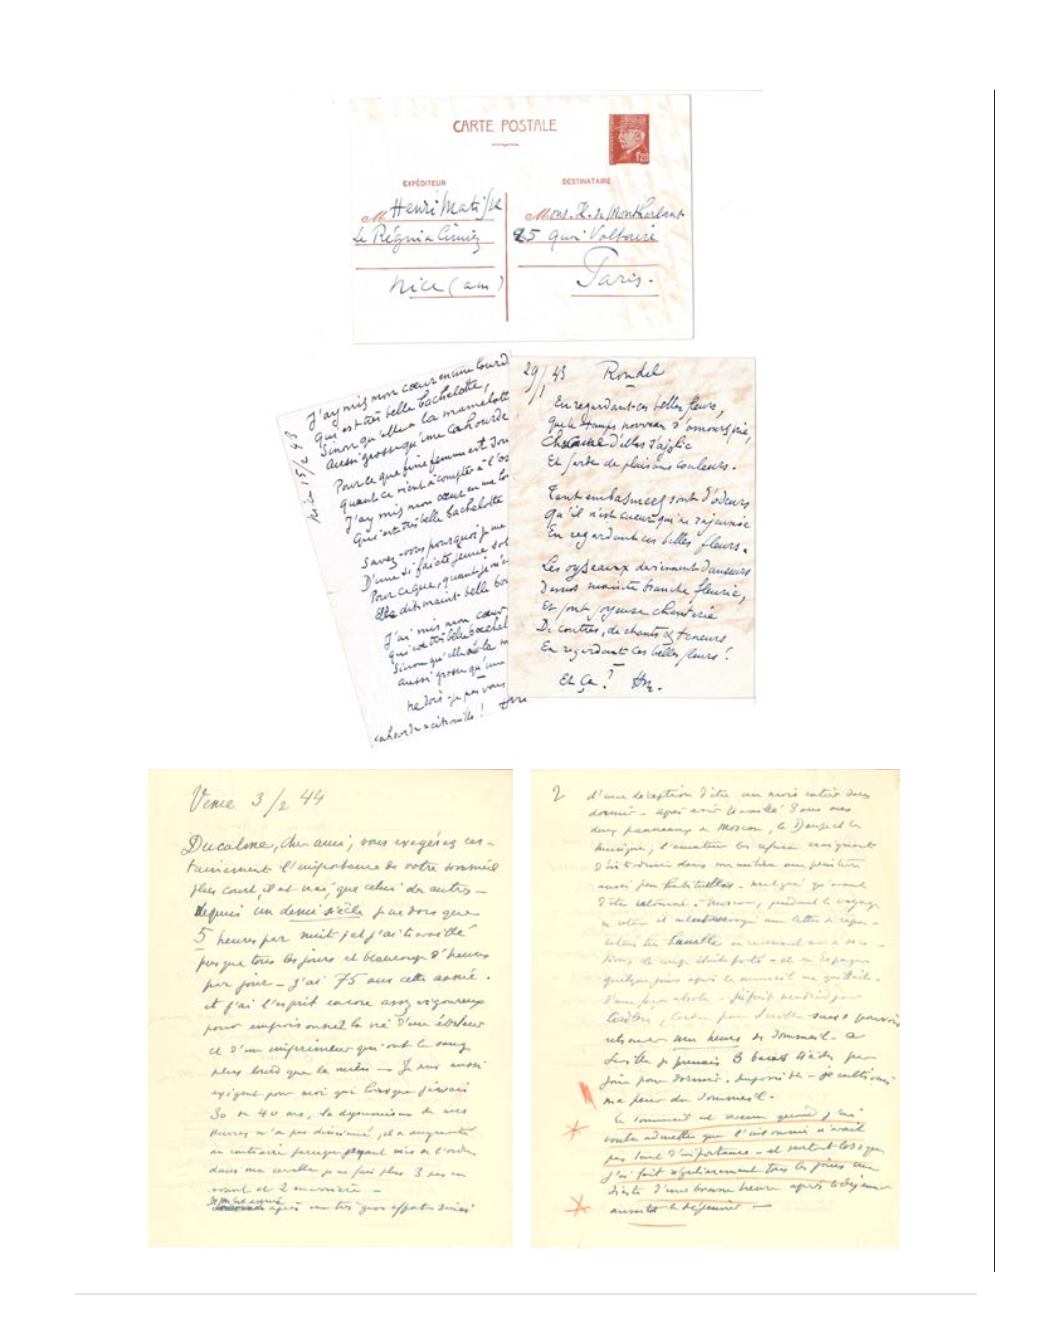 CARTE POSTALE
1f20
EXPÉDITEUR
DESTINATAIRE
M Henri Matisse
Le Régina Cimiez
Nice (am)
Mons. H. de Montherlant
25 quai Voltaire
Paris.
Nice 15/2 43
J'ay mis mon cœur en une lourd
Qui est très belle bachelotte,
Sinon qu'elle a la mamelott
Aussi grosse qu'une cahourde
Pour ce que fine femme est
Quant ce vient à compter à l'os
J'ay mis mon cœur en une lo
Qui est très belle bachelotte
Savez-vous pourquoi je me
D'une si faicte jeune
Pour ce que, quant je
Elle dit maint belle
J'ai mis mon cœur
Qui est très belle bachel
Sinon qu'elle a la m
Aussi grosse qu'une
ne dois-je pas vous
cahourde = citrouille !
29/1 43 Rondel
En regardant ces belles fleurs,
Que le temps nouveau d'amours prie,
Chascune d'elles s'ajolie
Et farde de plaisans couleurs.
Tant embasmees sont d'odeurs
Qu'il n'est cueur qui ne rajeunie
En regardant ces belles fleurs.
Les oyseaux deviennent danseurs
Dessus mainte branche fleurie,
Et font joyeuse chanterie
De contres, de chants & teneurs
En regardant ces belles fleurs !
Et Ça ? Hm.
Vence 3/2 44
Du calme, cher ami, vous exagérez cer-
tainement l'importance de votre sommeil
plus court, il est vrai, que celui des autres -
depuis un demi siècle je ne dors que
5 heures par nuit, et j'ai travaillé
presque tous les jours et beaucoup d'heures
par jour - j'ai 75 ans cette année.
et j'ai l'esprit encore assez vigoureux
pour empoisonner la vie d'un éditeur
et d'un imprimeur qui ont le sang
plus lourd que le mien - Je suis aussi
exigent pour moi qui lorsque j'avais
30 ou 40 ans, le dynamisme de mes
œuvres n'a pas diminué, il a augmenté
au contraire parceque ayant mis de l'ordre
dans ma cervelle je ne fais plus 3 pas en
avant et 2 en arrière -
après un très gros effort suivi
2 d'une déception d'être un mois entier sans
dormir - après avoir travaillé mes
deux panneaux de Moscou, la Danse et la
musique, l'amateur les refusa craignant
d'introduire dans son milieu une peinture
aussi peu habituelle - malgré qu'avant
d'être retourné à Moscou, pendant le voyage
de retour il
et en Espagne
quelques jours après le sommeil me quittait
d'une façon absolue -
Cordoue, pour Séville sans pouvoir
retrouver une heure de sommeil - à
Séville je prenais 3 bains tièdes par
jour pour dormir. Impossible - je cultivais
ma peur du sommeil.
Le sommeil est revenu quand j'ai
voulu admettre que l'insomnie n'avait
pas tant d'importance - et surtout lorsque
j'ai fait régulièrement tous les jours une
sieste d'une bonne heure après le déjeuner
aussitôt le déjeuner -